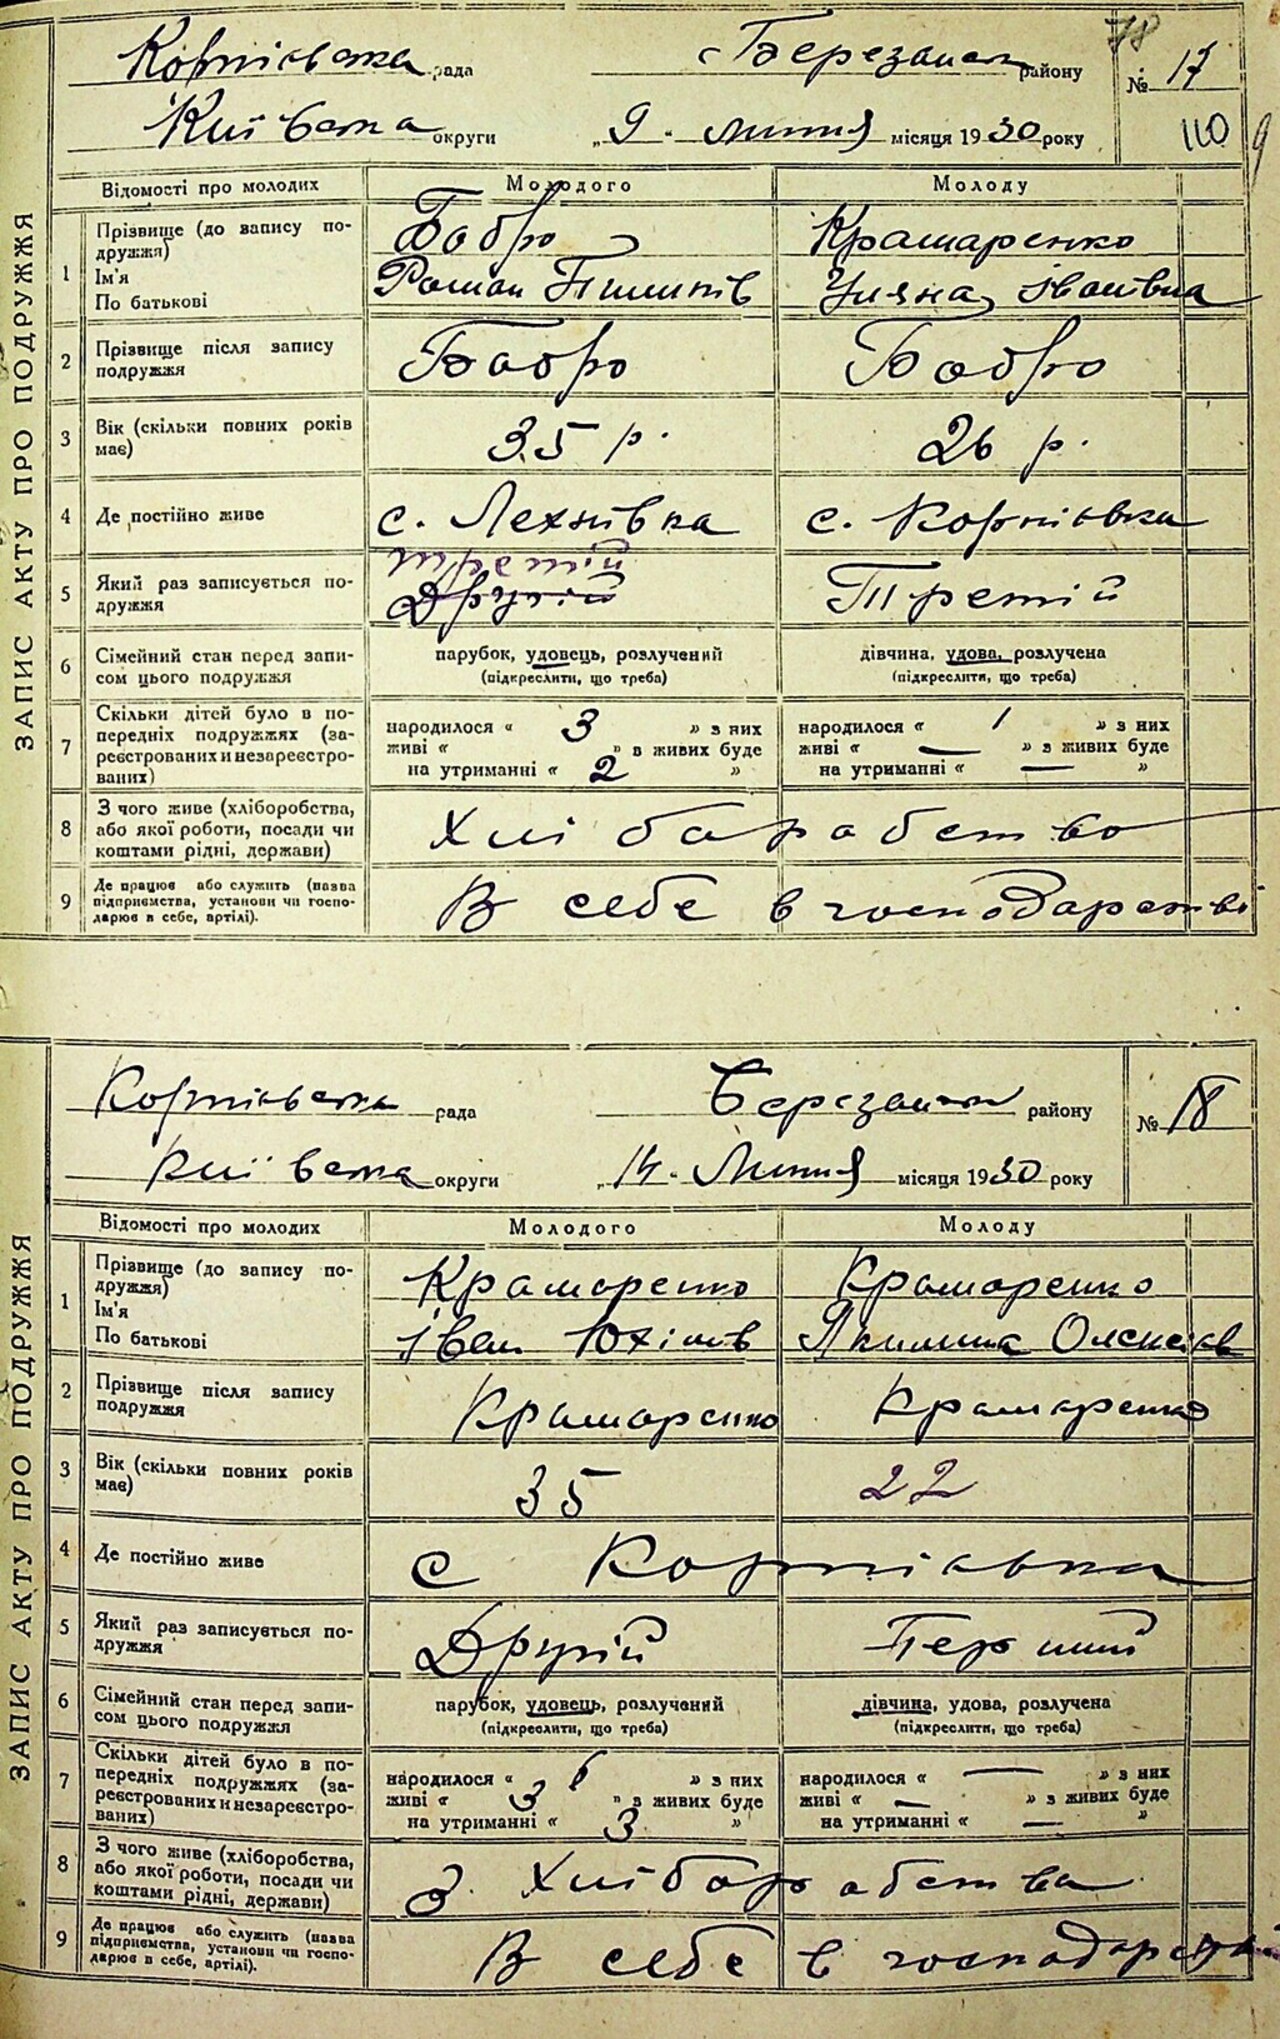 78
Корніівська рада Березанськ району № 17
Київська округи „9" липня місяця 1930 року 110 9
ЗАПИС АКТУ ПРО ПОДРУЖЖЯ
Відомості про молодих Молодого Молоду
1 Прізвище (до запису подружжя) Бобро Крамаренко
Ім'я
По батькові Роман Пилипів Уляна Іванівна
2 Прізвище після запису подружжя Бобро Бобро
3 Вік (скільки повних років має) 35 р. 26 р.
4 Де постійно живе с. Лехнівка с. Корніівка
третій
5 Який раз записується подружжя Другій Третій
6 Сімейний стан перед записом цього подружжя парубок, удовець, розлучений дівчина, удова, розлучена
(підкреслити, що треба) (підкреслити, що треба)
7 Скільки дітей було в попередніх подружжях (зареєстрованих и незареєстрованих) народилося « 3 » з них народилося « 1 » з них
живі « » в живих буде живі « — » з живих буде
на утриманні « 2 » на утриманні « — »
8 З чого живе (хліборобства, або якої роботи, посади чи коштами рідні, держави) Хліборобство
9 Де працює або служить (назва підприємства, установи чи господарює в себе, артілі). В себе в господарстві
Корніівська рада Березанськ району № 18
Київська округи „14" Липня місяця 1930 року
ЗАПИС АКТУ ПРО ПОДРУЖЖЯ
Відомості про молодих Молодого Молоду
1 Прізвище (до запису подружжя) Крамаренко Крамаренко
Ім'я
По батькові Іван Юхімів Якилина Олексіів
2 Прізвище після запису подружжя Крамаренко Крамаренко
3 Вік (скільки повних років має) 35 22
4 Де постійно живе с Корніівка
5 Який раз записується подружжя Другій Перший
6 Сімейний стан перед записом цього подружжя парубок, удовець, розлучений дівчина, удова, розлучена
(підкреслити, що треба) (підкреслити, що треба)
7 Скільки дітей було в попередніх подружжях (зареєстрованих и незареєстрованих) народилося « 6 » з них народилося « — » з них
живі « 3 » з живих буде живі « — » з живих буде
на утриманні « 3 » на утриманні « — »
8 З чого живе (хліборобства, або якої роботи, посади чи коштами рідні, держави) З Хліборобства
9 Де працює або служить (назва підприємства, установи чи господарює в себе, артілі). В себе в господарстві